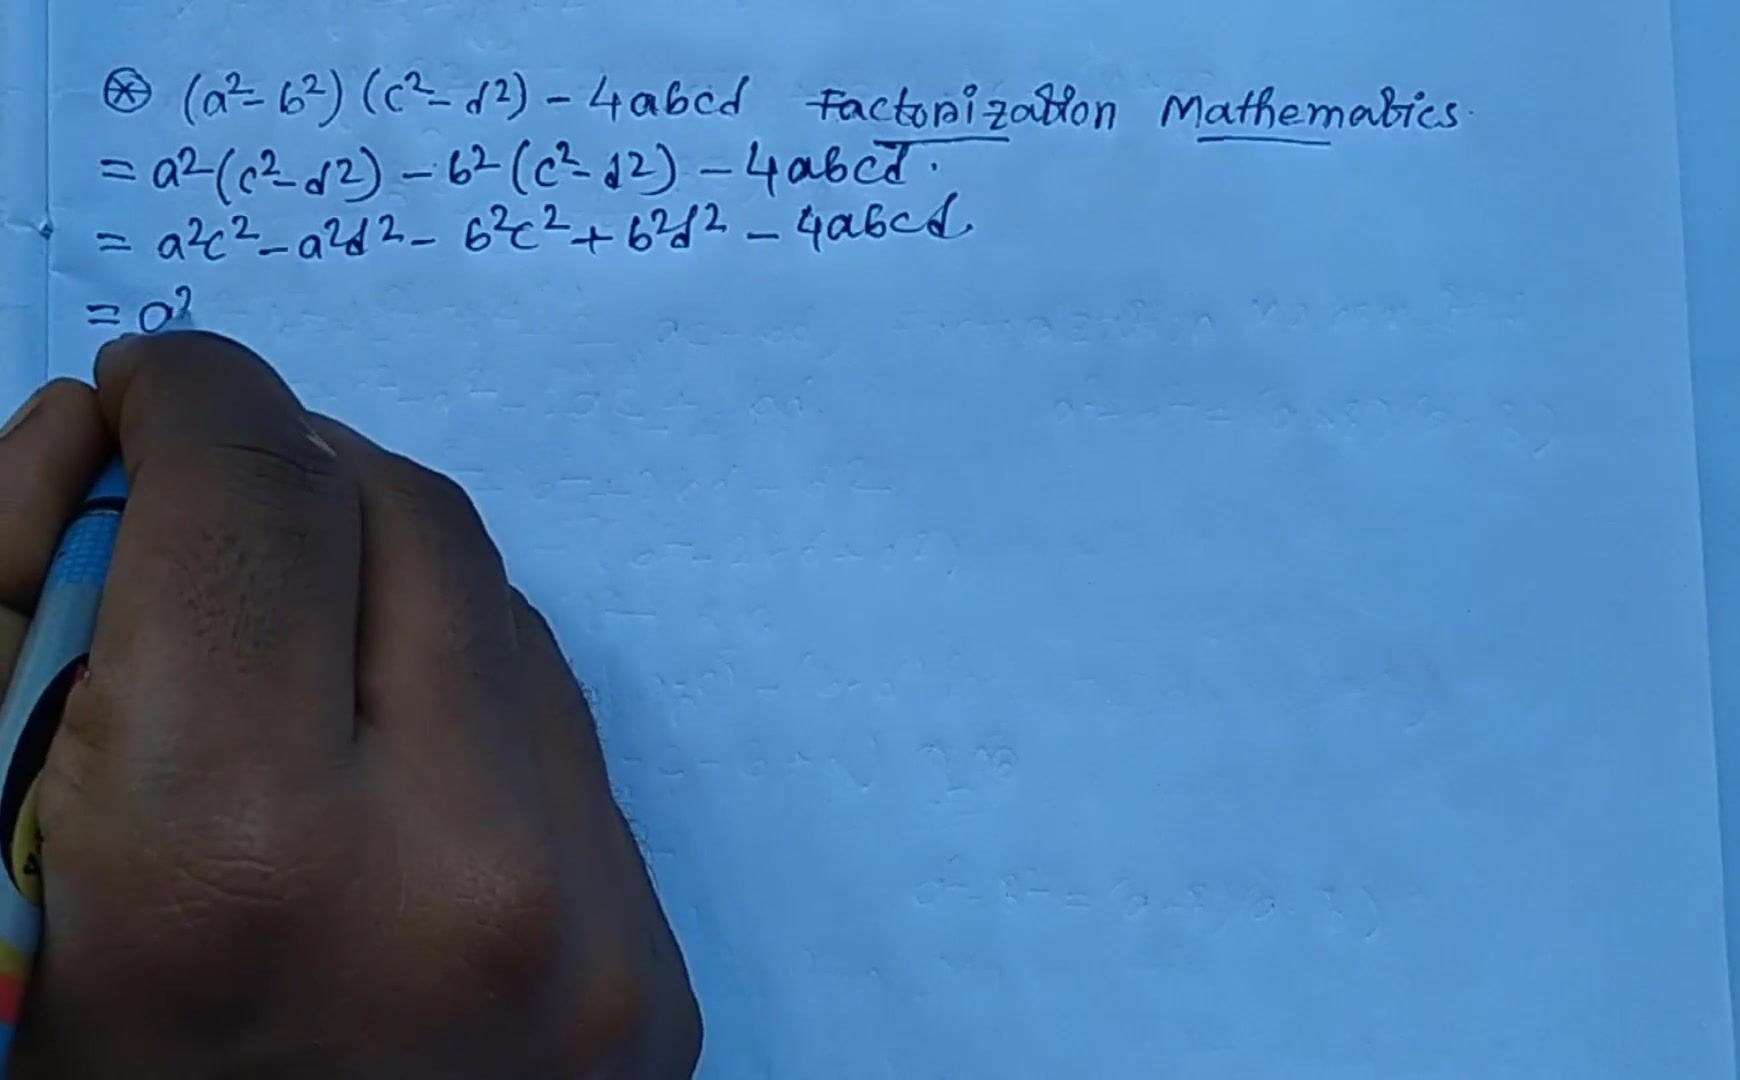 ⊛ (a²-b²) (c²-d²) - 4abcd Factorization Mathematics.
= a²(c²-d²) - b²(c²-d²) - 4abcd.
= a²c² - a²d² - b²c² + b²d² - 4abcd.
= a²